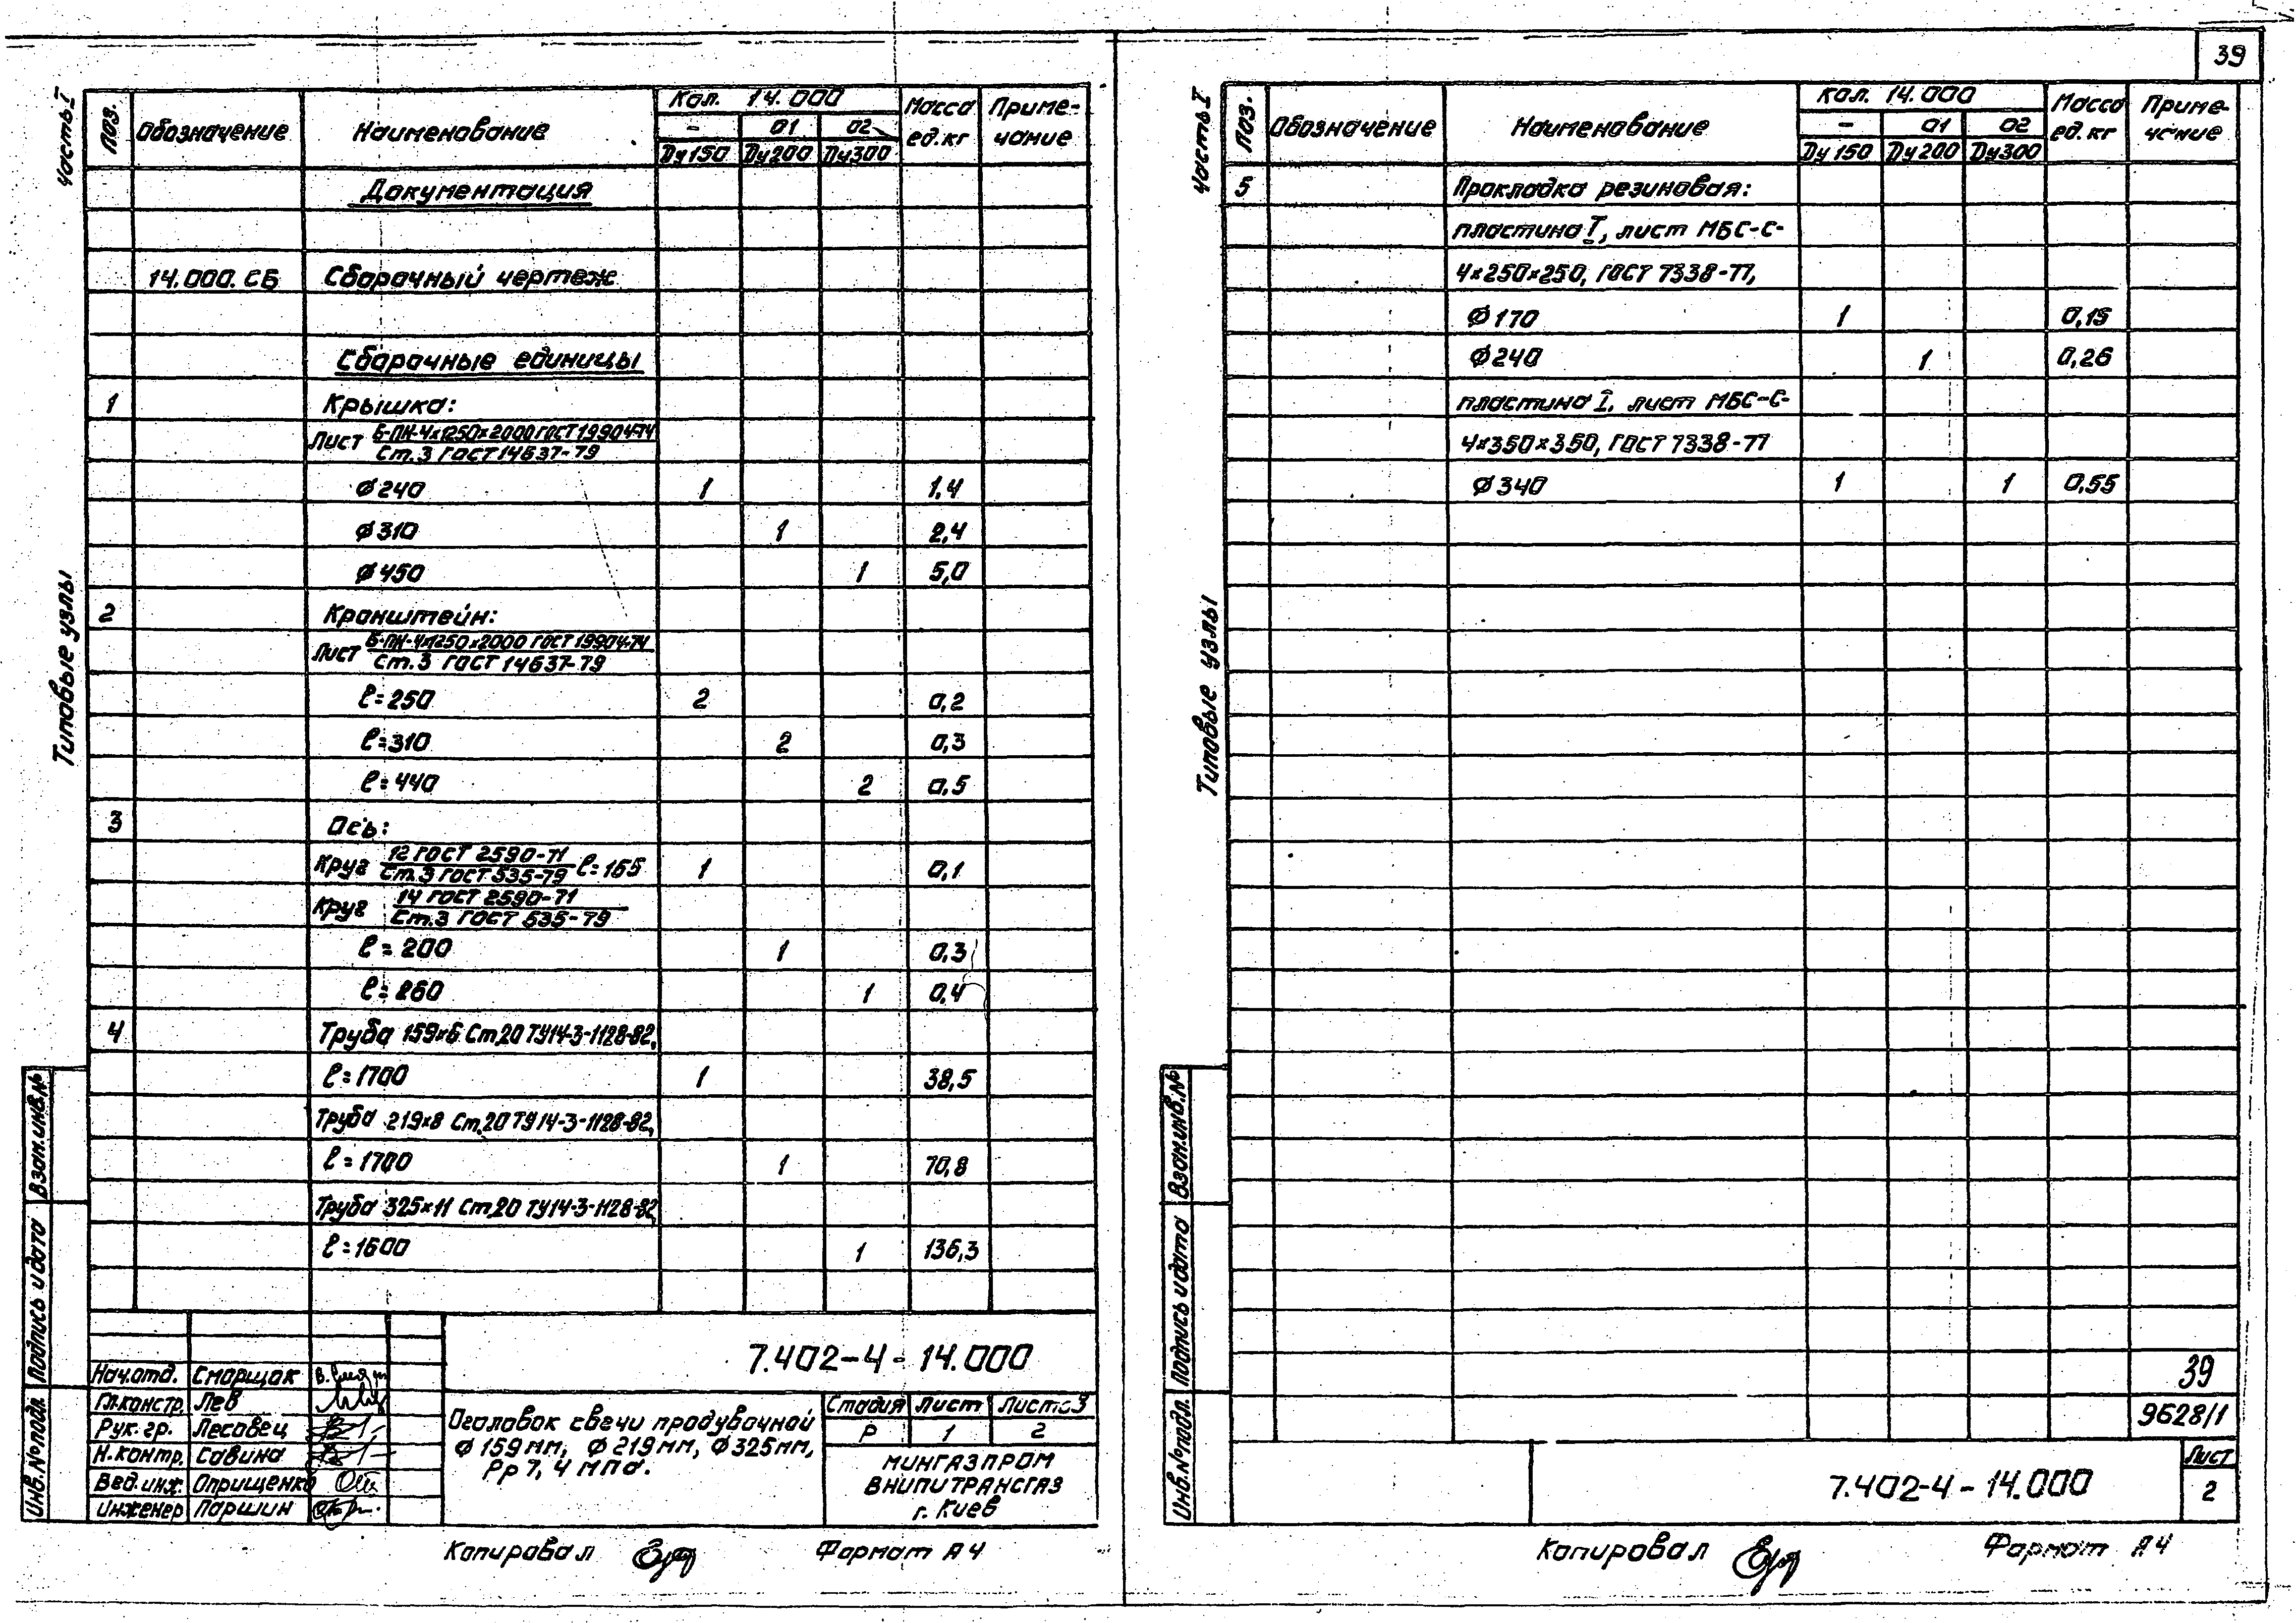 39
Часть I
Типовые узлы
Поз. Обозначение Наименование Кол. 14.000 Масса ед.кг Приме-чание
- 01 02
Ду150 Ду200 Ду300
Документация
14.000.СБ Сборочный чертеж
Сборочные единицы
1 Крышка:
Лист Б-ПН-4×1250×2000 ГОСТ 19904-74
Ст.3 ГОСТ 14637-79
ϕ240 1 1,4
ϕ310 1 2,4
ϕ450 1 5,0
2 Кронштейн:
Лист Б-ПН-4×1250×2000 ГОСТ 19904-74
Ст.3 ГОСТ 14637-79
ℓ=250 2 0,2
ℓ=310 2 0,3
ℓ=440 2 0,5
3 Ось:
Круг 12 ГОСТ 2590-71 ℓ=165 1 0,1
Ст.3 ГОСТ 535-79
Круг 14 ГОСТ 2590-71
Ст.3 ГОСТ 535-79
ℓ=200 1 0,3
ℓ=260 1 0,4
4 Труба 159×6 Ст.20 ТУ14-3-1128-82,
ℓ=1700 1 38,5
Труба 219×8 Ст.20 ТУ14-3-1128-82,
ℓ=1700 1 70,8
Труба 325×11 Ст.20 ТУ14-3-1128-82
ℓ=1600 1 136,3
Взам.инв.№
Подпись и дата
Инв.№ подл.
7.402-4-14.000
Нач.отд. Сморщок
Гл.констр. Лев
Рук.гр. Лесовец
Н.контр. Савина
Вед.инж. Оприщенко
Инженер Паршин
Оголовок свечи продувочной
ϕ159мм, ϕ219мм, ϕ325мм,
Рр 7,4 МПа.
Стадия Лист Листов
Р 1 2
МИНГАЗПРОМ
ВНИПИТРАНСГАЗ
г. Киев
Копировал Формат А4
Часть I
Типовые узлы
Поз. Обозначение Наименование Кол. 14.000 Масса ед.кг Приме-чание
- 01 02
Ду150 Ду200 Ду300
5 Прокладка резиновая:
пластина I, лист МБС-С-
4×250×250, ГОСТ 7338-77,
ϕ170 1 0,15
ϕ240 1 0,26
пластина I, лист МБС-С-
4×350×350, ГОСТ 7338-77
ϕ340 1 1 0,55
Взам.инв.№
Подпись и дата
Инв.№ подл.
39
9628/1
7.402-4-14.000
Лист
2
Копировал Формат А4